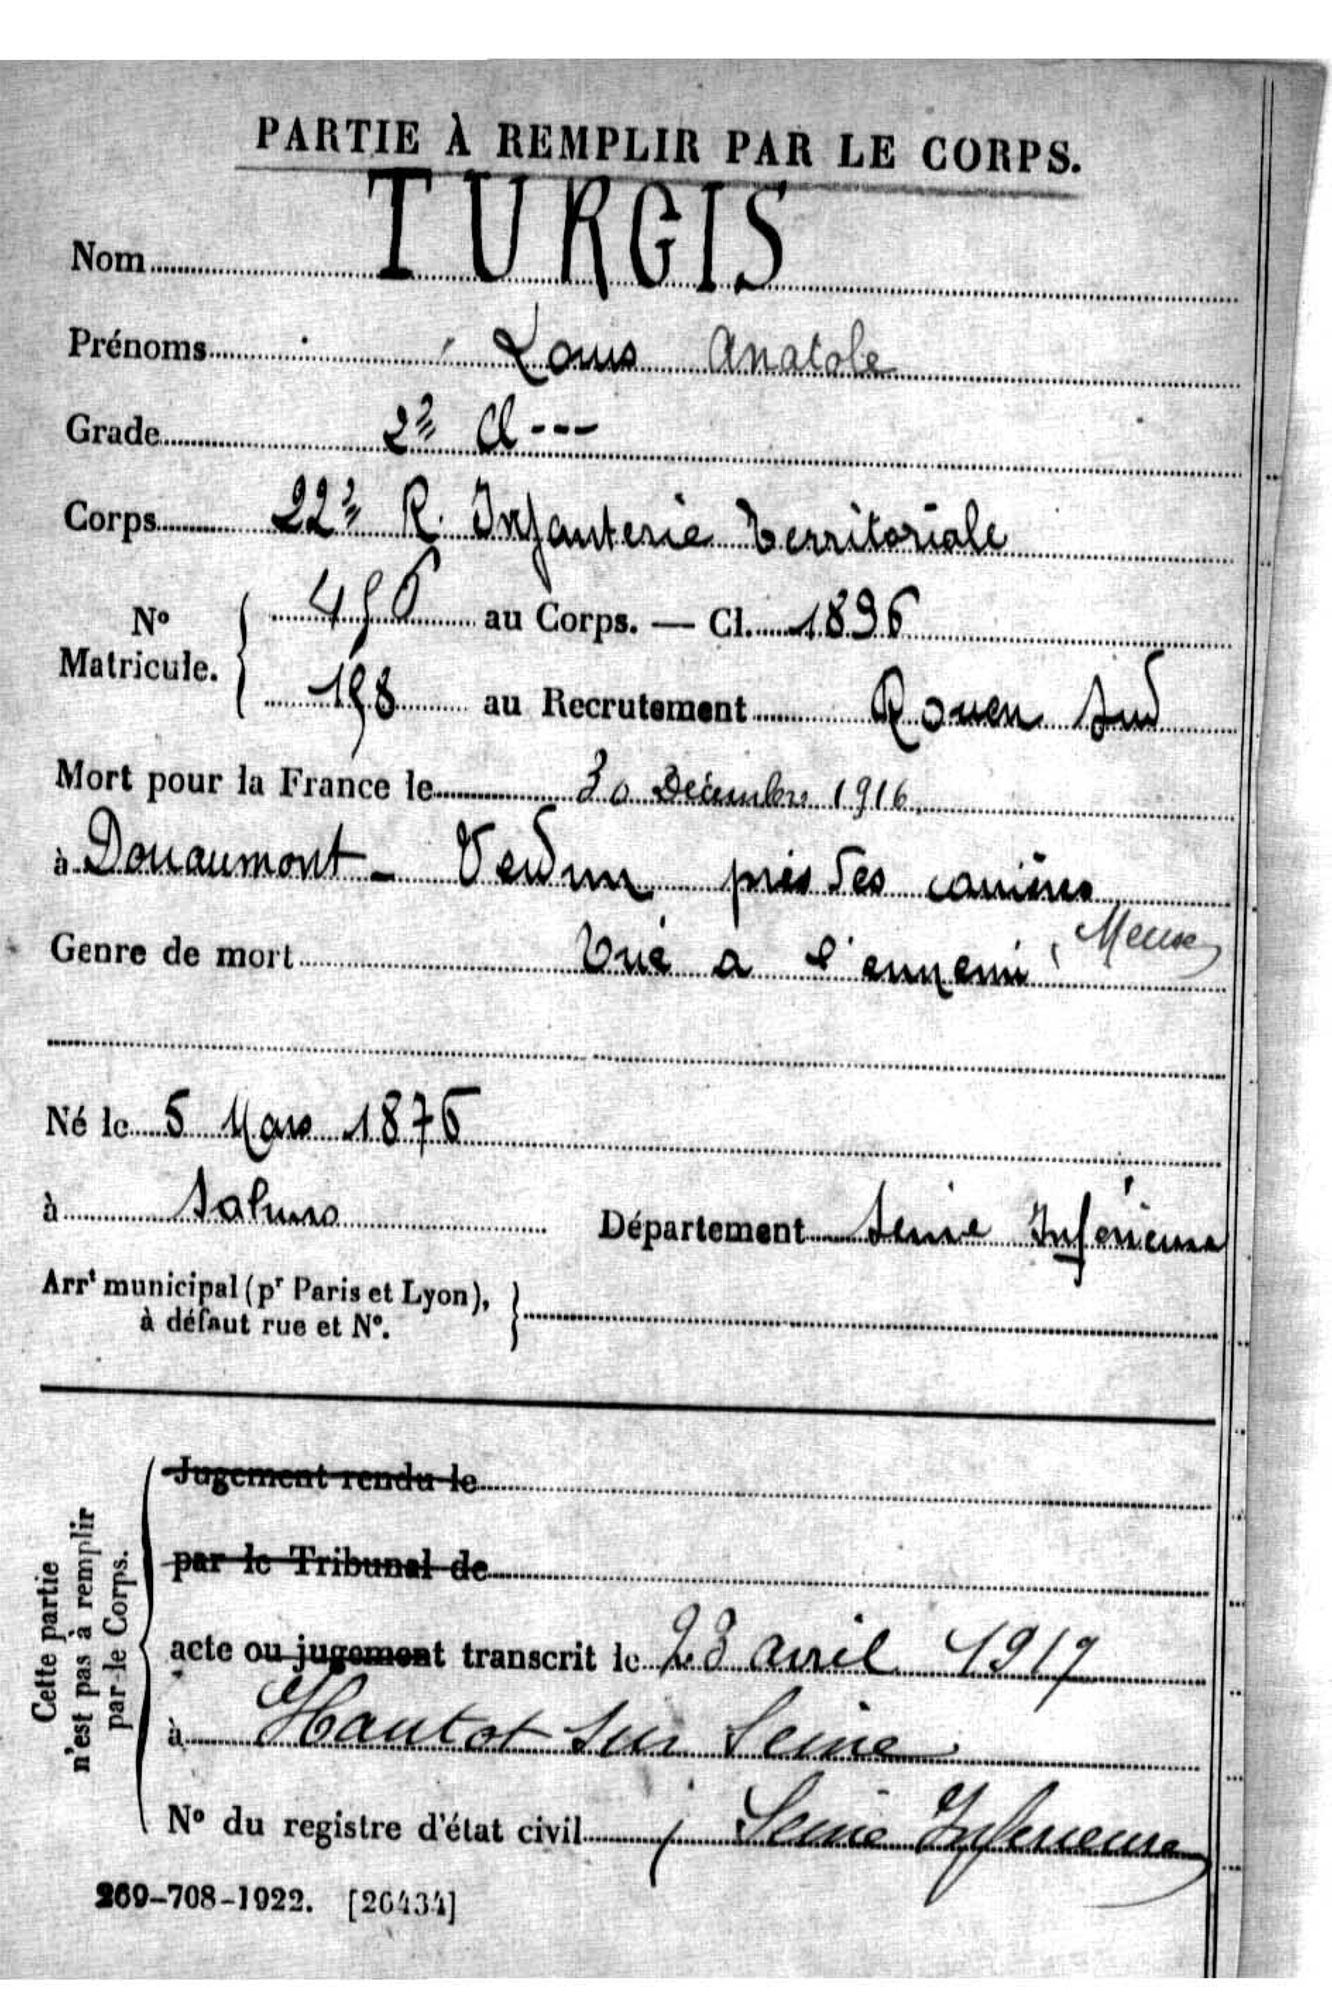 PARTIE À REMPLIR PAR LE CORPS.
Nom TURGIS
Prénoms Louis Anatole
Grade 2e Cl ---
Corps 22e R. Infanterie Territoriale
No Matricule. { 456 au Corps. — Cl. 1896
158 au Recrutement Rouen Sud
Mort pour la France le 30 Décembre 1916
à Douaumont - Verdun près des carrières
Meuse
Genre de mort Tué a l'ennemi
Né le 5 Mars 1876
à Sahurs Département Seine Inférieure
Arrt municipal (pr Paris et Lyon),
à défaut rue et No. }
Cette partie
n'est pas à remplir
par le Corps.
Jugement rendu le
par le Tribunal de
acte ou jugement transcrit le 23 avril 1917
à Hautot sur Seine
No du registre d'état civil Seine Inferieure
269-708-1922. [26434]